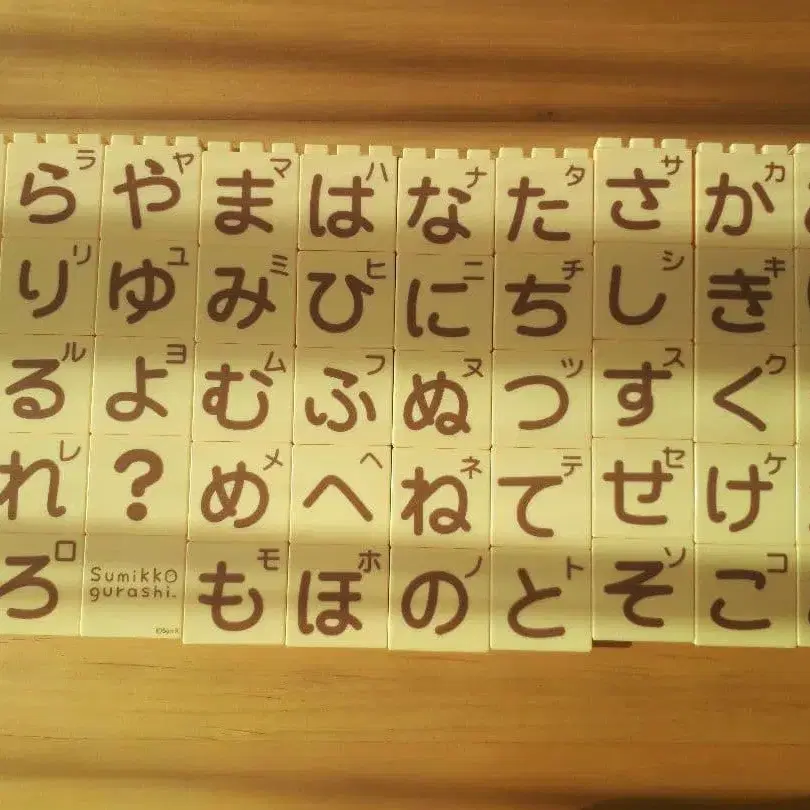 ら ラ や ヤ ま マ は ハ な ナ た タ さ サ か カ
り リ ゆ ユ み ミ ひ ヒ に ニ ち チ し シ き キ
る ル よ ヨ む ム ふ フ ぬ ヌ つ ツ す ス く ク
れ レ ? め メ へ ヘ ね ネ て テ せ セ け ケ
ろ ロ Sumikko gurashi™ も モ ほ ホ の ノ と ト そ ソ こ コ